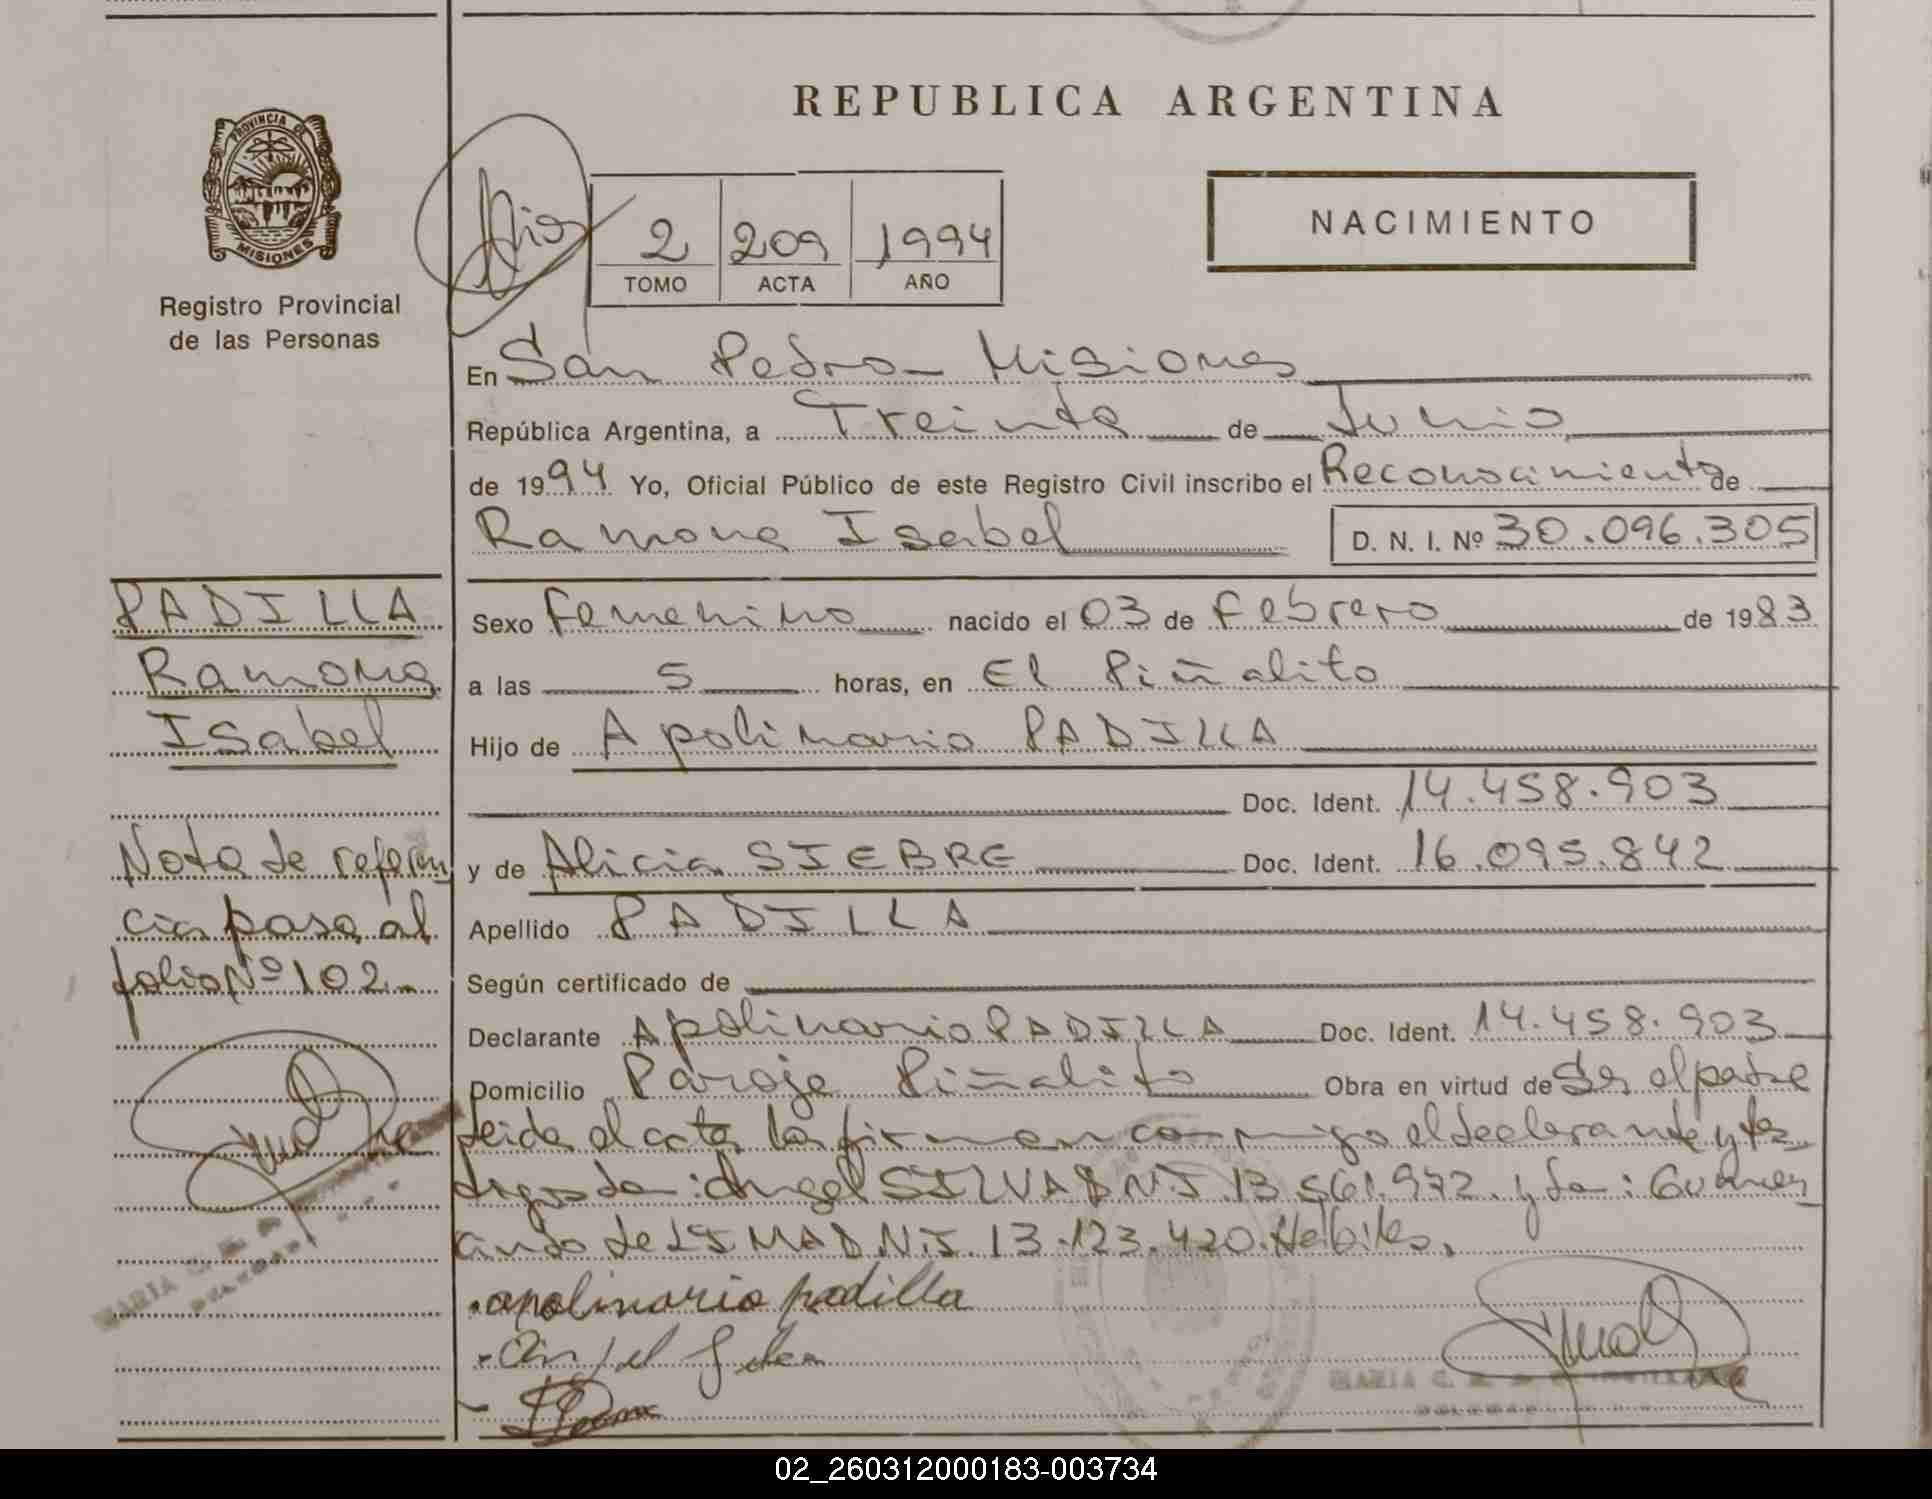 REPUBLICA ARGENTINA
PROVINCIA DE
MISIONES
Registro Provincial
de las Personas
2 209 1994
TOMO ACTA AÑO
NACIMIENTO
En San Pedro - Misiones
República Argentina, a Treinta de Junio
de 1994 Yo, Oficial Público de este Registro Civil inscribo el Reconocimiento de
Ramona Isabel D. N. I. Nº 30.096.305
PADILLA
Ramona
Isabel
Nota de referen
cia pasa al
folio Nº 102.-
Sexo Femenino nacido el 03 de Febrero de 1983
a las 5 horas, en El Piñalito
Hijo de Apolinario PADILLA
Doc. Ident. 14.458.903
y de Alicia SIEBRE Doc. Ident. 16.095.842
Apellido PADILLA
Según certificado de
Declarante Apolinario PADILLA Doc. Ident. 14.458.903
Domicilio Paraje Piñalito Obra en virtud de Ser el padre
Leida el acta la firman conmigo el declarante y tes
tigos da: Angel SILVA DNI. 13.561.972. y da: Gumer
cindo de LIMA DNI. 13.123.420. Hábiles.
apolinario padilla
MARIA C.
02_260312000183-003734